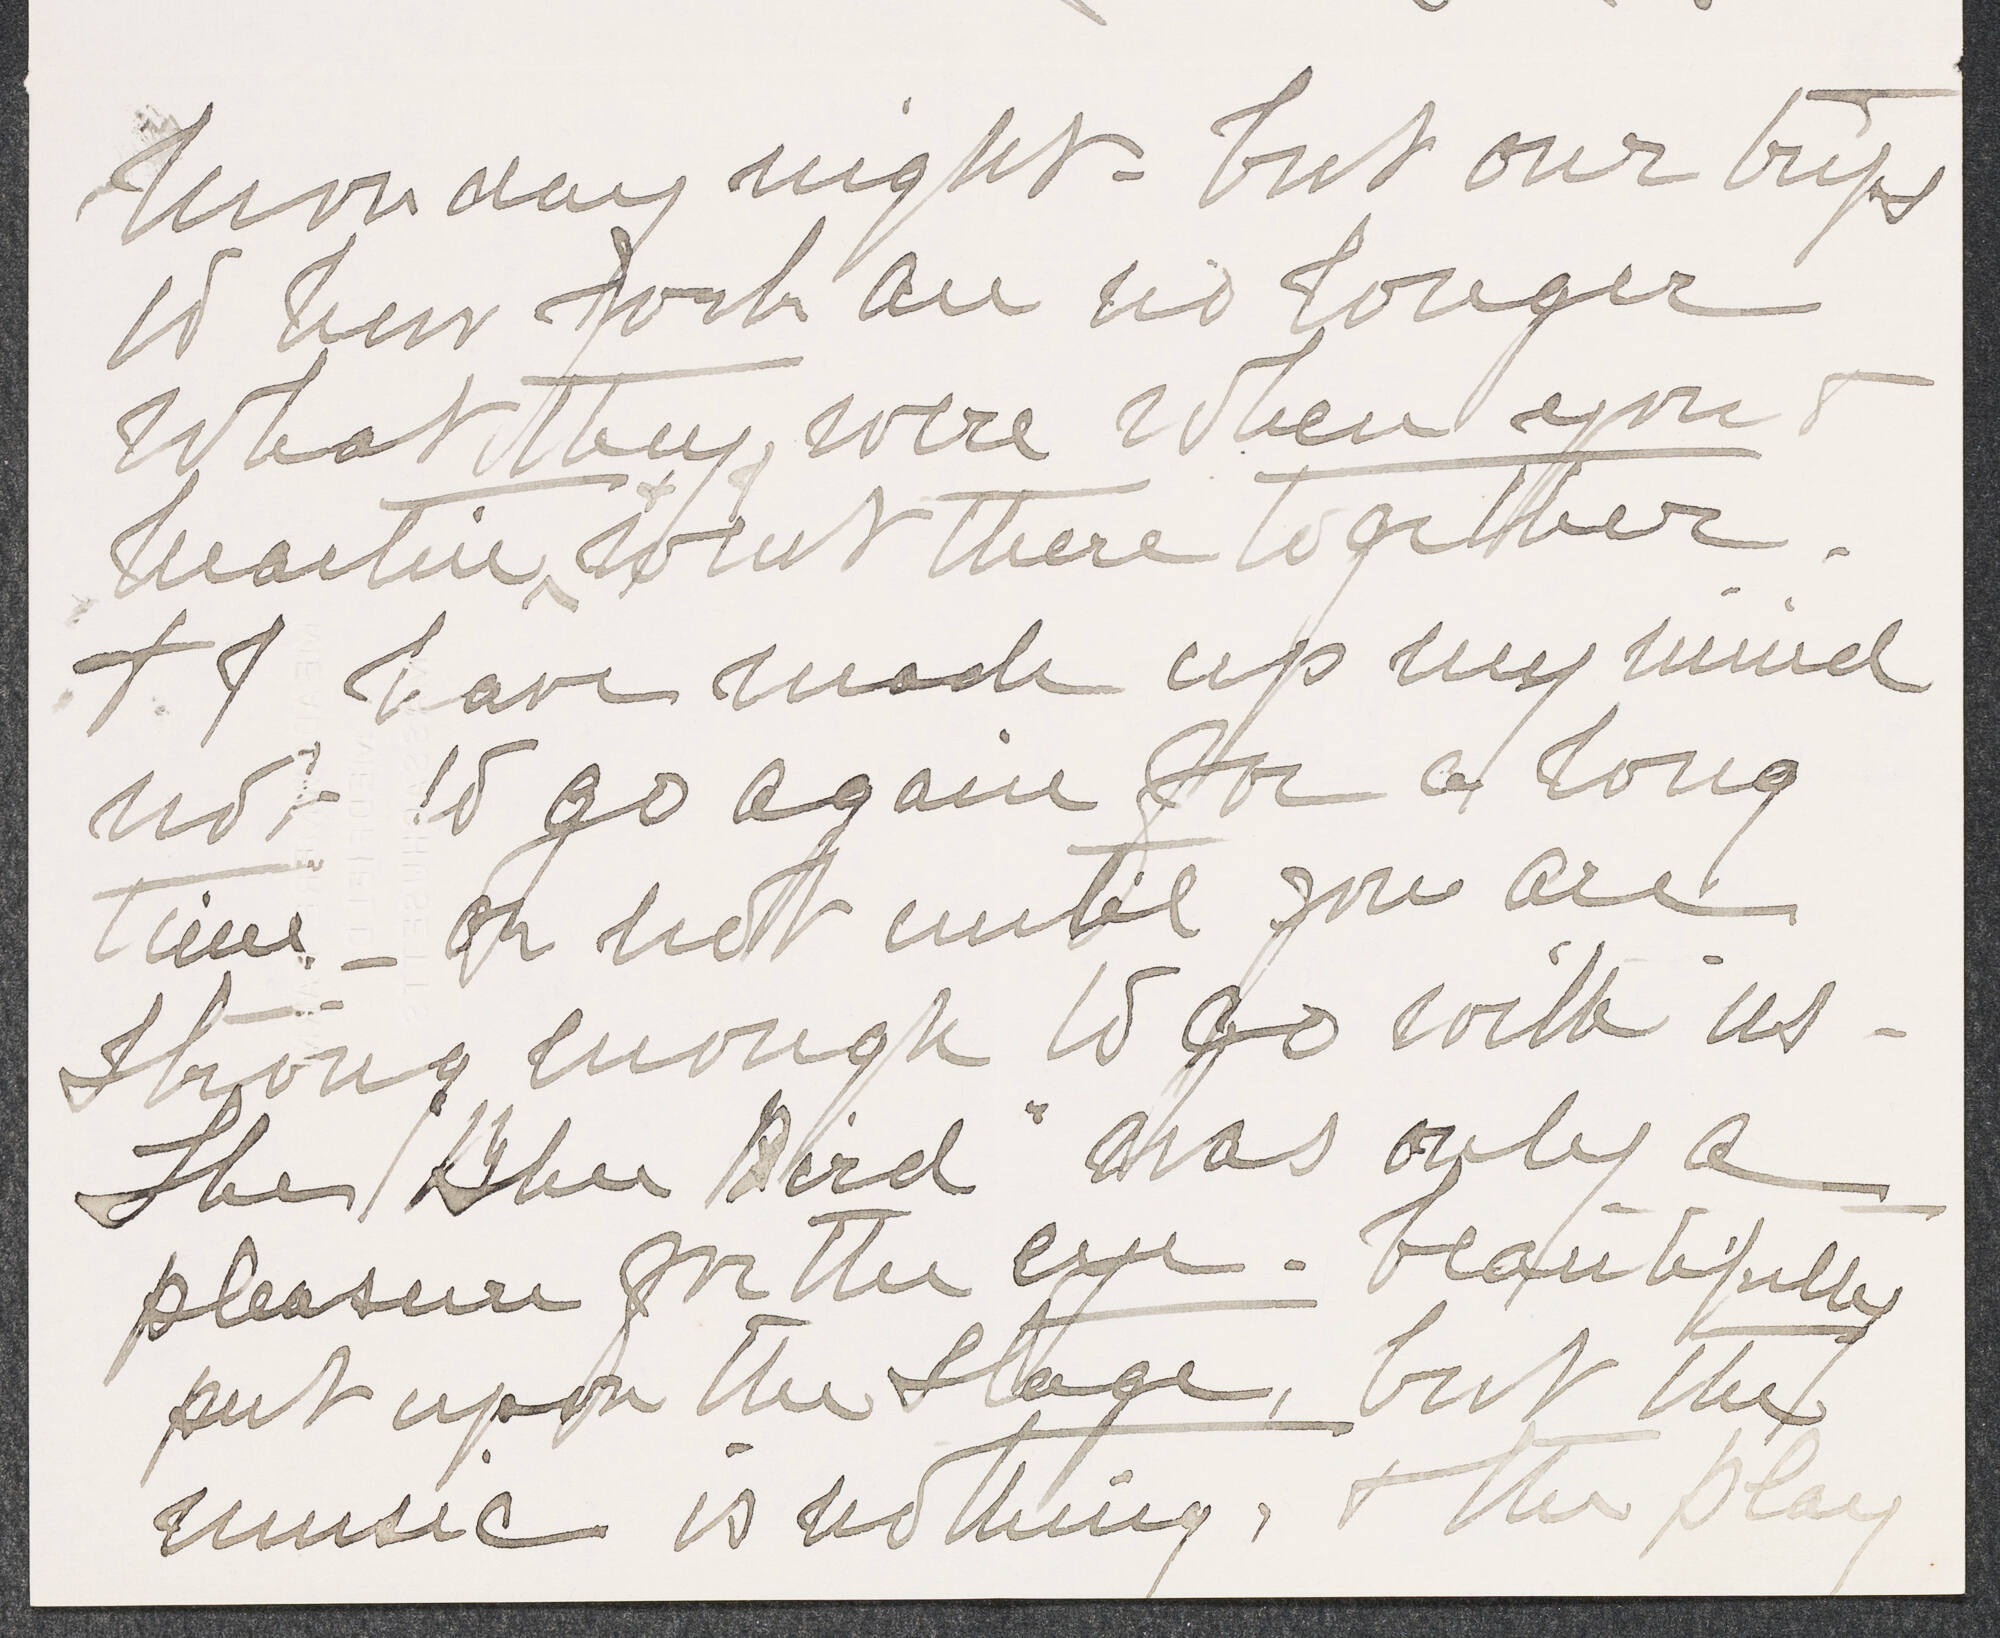 Monday night - but our trips
to New York are no longer
what they were when you &
Martin & I went there together.
& I have made up my mind
not to go again for a long
time - or not until you are
strong enough to go with us -
The "Blue Bird" was only a
pleasure for the eye - beautifully
put upon the stage, but the
music is nothing, & the play